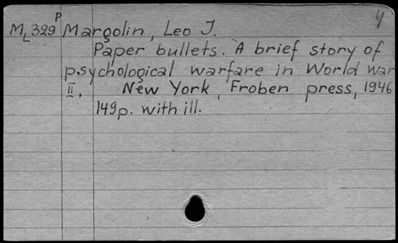 P y
ML329 Margolin, Leo J.
Paper bullets. A brief story of
psychological warfare in World war
II. New York, Froben press, 1946
149p. with ill.